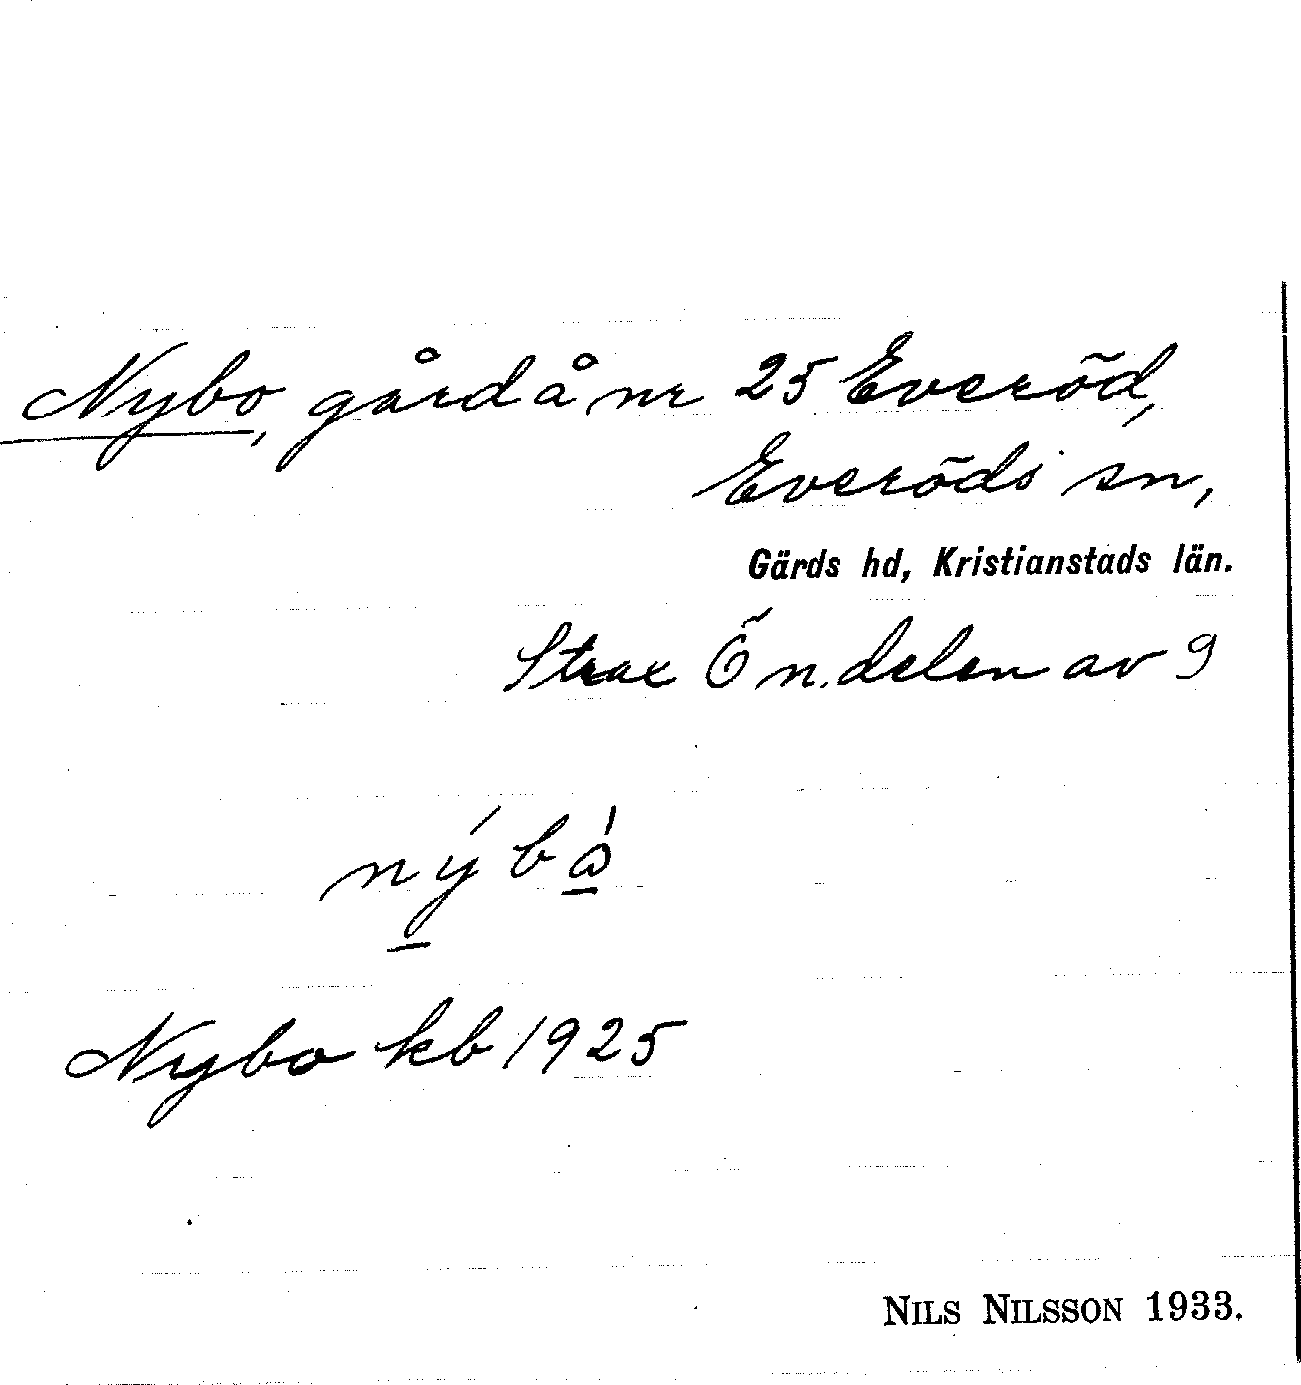 Nybo, gård å nr 25 Everöd,
Everöds sn,
Gärds hd, Kristianstads län.
Strax Ö n. delen av 9
Nybo kb 1925
NILS NILSSON 1933.